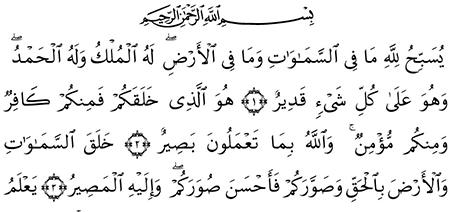 بِسْمِ ٱللَّهِ ٱلرَّحْمَٰنِ ٱلرَّحِيمِ
يُسَبِّحُ لِلَّهِ مَا فِى ٱلسَّمَٰوَٰتِ وَمَا فِى ٱلْأَرْضِ ۖ لَهُ ٱلْمُلْكُ وَلَهُ ٱلْحَمْدُ ۖ
وَهُوَ عَلَىٰ كُلِّ شَىْءٍ قَدِيرٌ ﴿١﴾ هُوَ ٱلَّذِى خَلَقَكُمْ فَمِنكُمْ كَافِرٌ
وَمِنكُم مُّؤْمِنٌ ۚ وَٱللَّهُ بِمَا تَعْمَلُونَ بَصِيرٌ ﴿٢﴾ خَلَقَ ٱلسَّمَٰوَٰتِ
وَٱلْأَرْضَ بِٱلْحَقِّ وَصَوَّرَكُمْ فَأَحْسَنَ صُوَرَكُمْ ۖ وَإِلَيْهِ ٱلْمَصِيرُ ﴿٣﴾ يَعْلَمُ